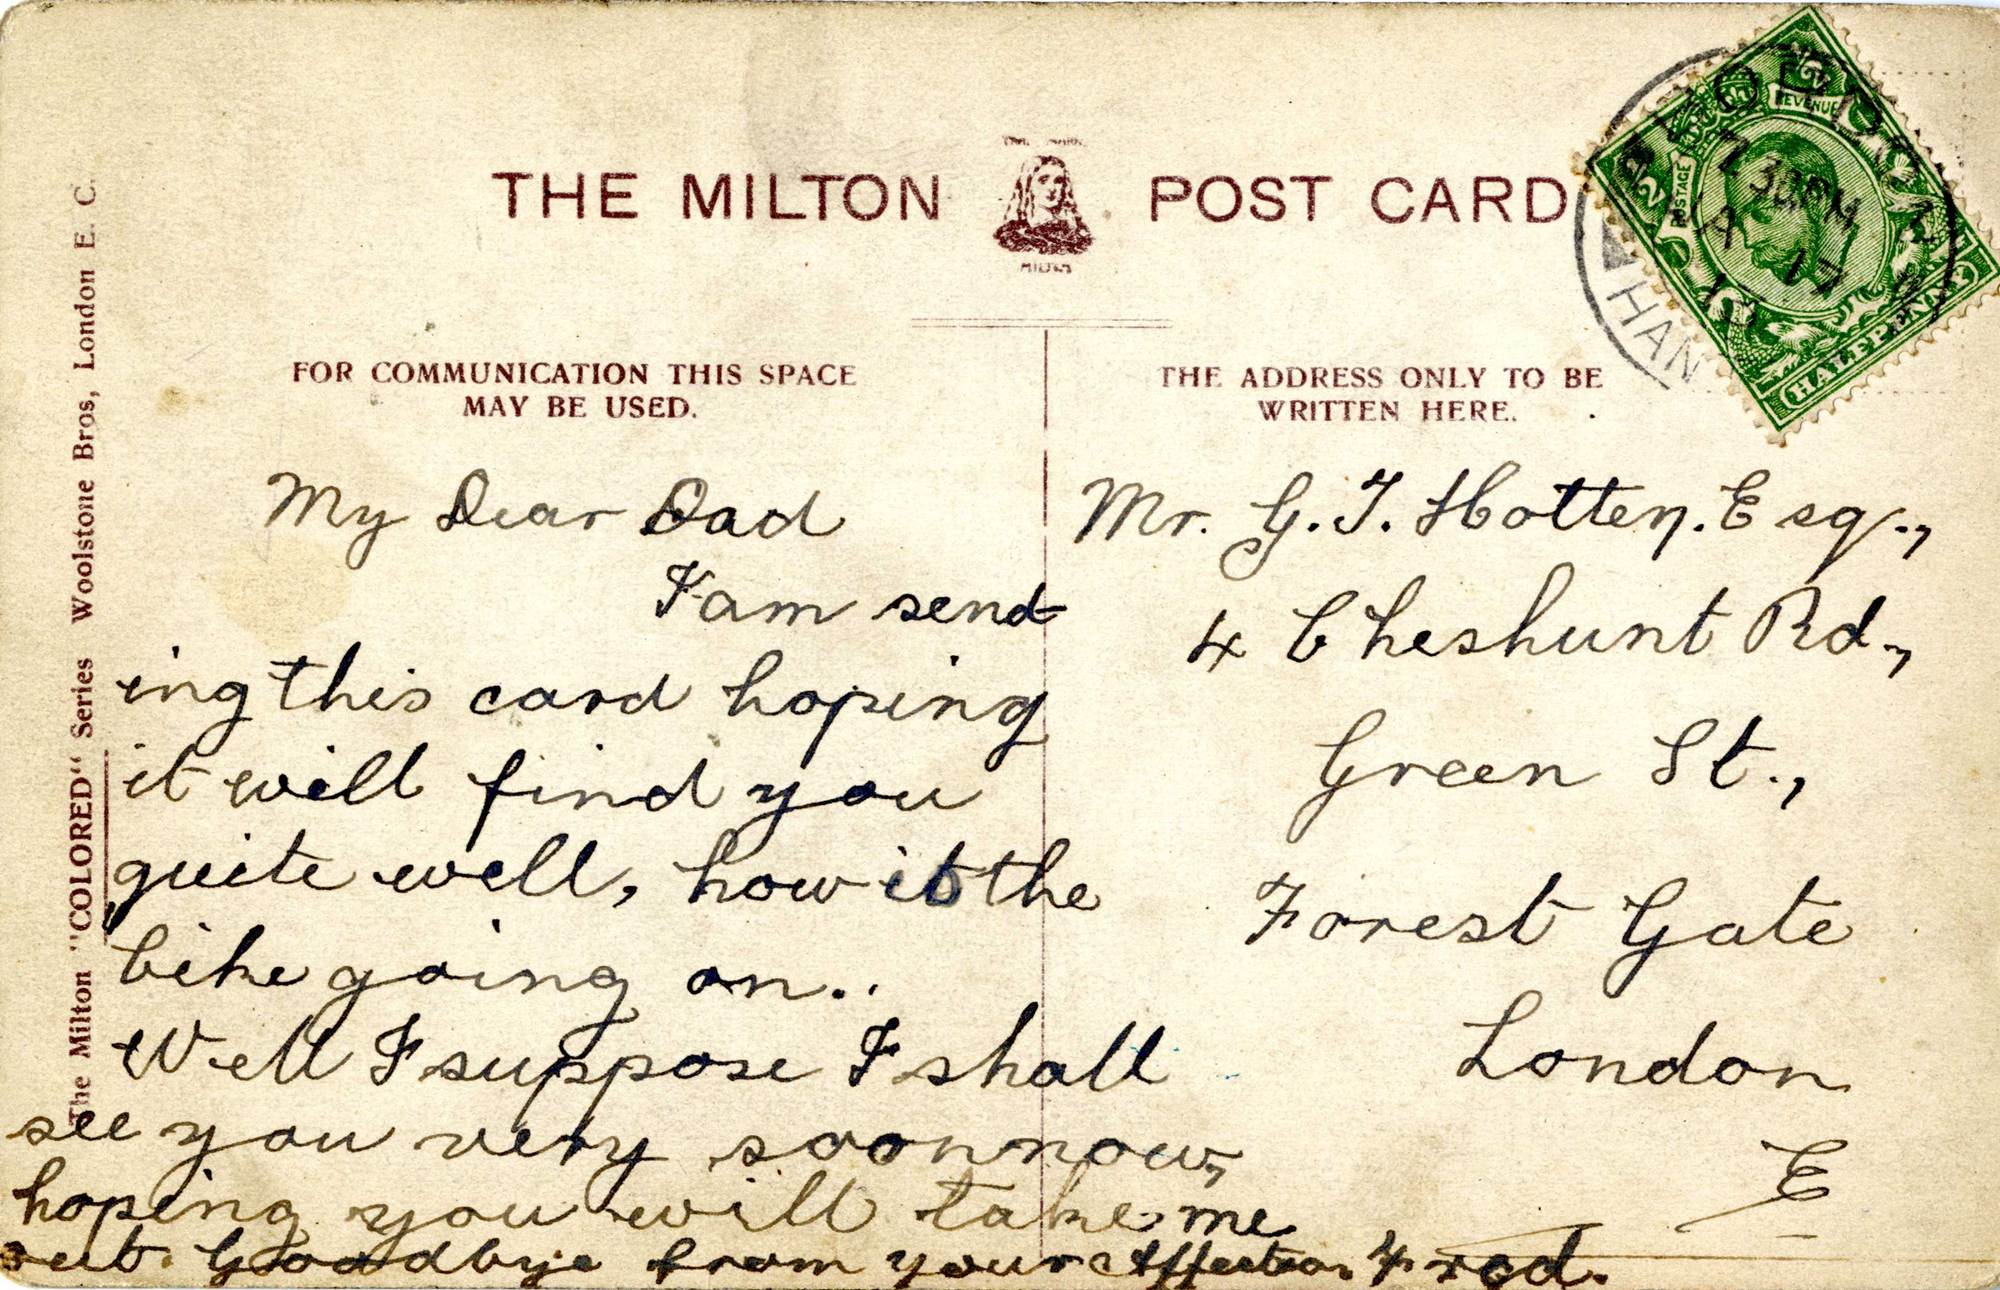 THE MILTON POST CARD
MILTON
FOR COMMUNICATION THIS SPACE
MAY BE USED.
THE ADDRESS ONLY TO BE
WRITTEN HERE.
The Milton "COLORED" Series Woolstone Bros, London E. C.
POSTAGE
REVENUE
HALFPENNY
7 30 PM
17
HAN
My Dear Dad
I am send
ing this card hoping
it will find you
quite well, how is the
bike going on..
Well I suppose I shall
see you very soon now,
hoping you will take me
out. Goodbye from your Affection. Fred.
Mr. G. T. Hotten. Esq.,
4 Cheshunt Rd.,
Green St.,
Forest Gate
London
E